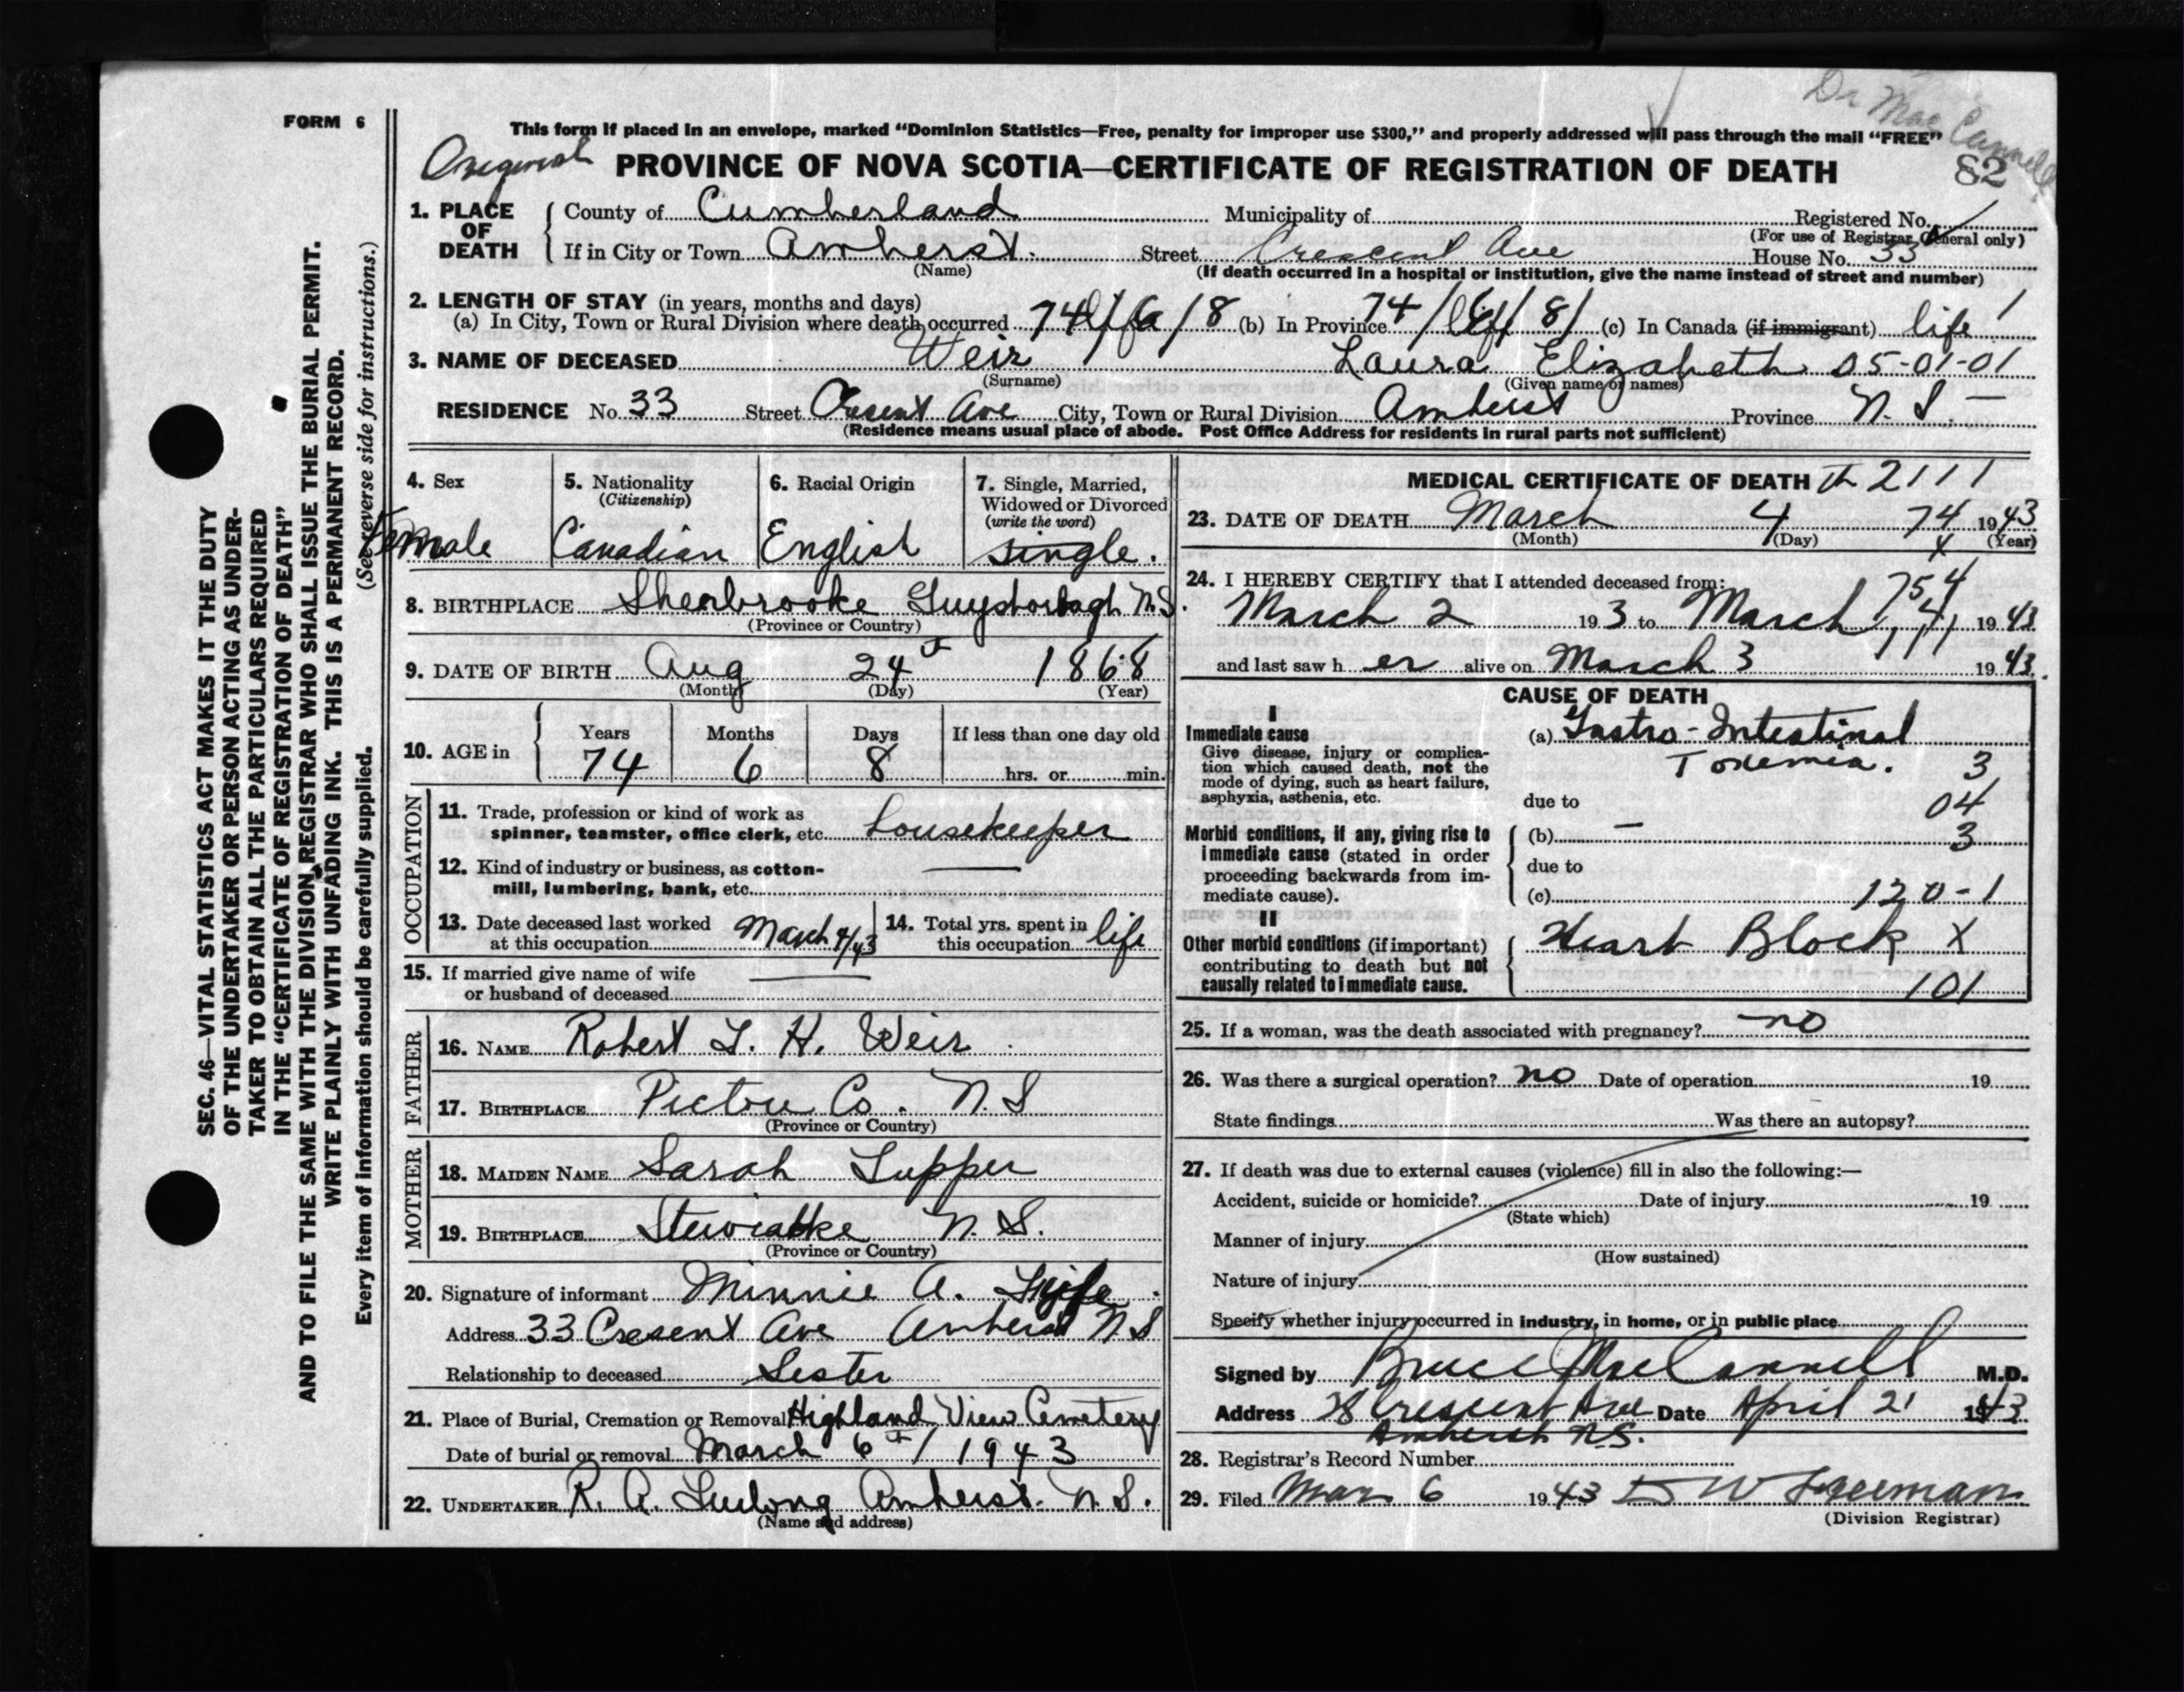 Dr MacCannell
FORM 6
This form if placed in an envelope, marked "Dominion Statistics—Free, penalty for improper use $300," and properly addressed will pass through the mail "FREE"
Original PROVINCE OF NOVA SCOTIA—CERTIFICATE OF REGISTRATION OF DEATH 82
1. PLACE OF DEATH
County of Cumberland Municipality of Registered No.
(For use of Registrar General only)
If in City or Town Amherst. Street Crescent Ave House No. 33
(Name) (If death occurred in a hospital or institution, give the name instead of street and number)
2. LENGTH OF STAY (in years, months and days)
(a) In City, Town or Rural Division where death occurred 74/6/8 (b) In Province 74/6/8/ (c) In Canada (if immigrant) life
3. NAME OF DECEASED Weir Laura Elizabeth 05-01-01
(Surname) (Given name or names)
RESIDENCE No. 33 Street Cresent Ave City, Town or Rural Division Amherst Province N. S. —
(Residence means usual place of abode. Post Office Address for residents in rural parts not sufficient)
4. Sex Female
5. Nationality (Citizenship) Canadian
6. Racial Origin English
7. Single, Married, Widowed or Divorced (write the word) single.
8. BIRTHPLACE Sherbrooke Guysborough N.S.
(Province or Country)
9. DATE OF BIRTH Aug 24th 1868
(Month) (Day) (Year)
10. AGE in Years Months Days If less than one day old
74 6 8 hrs. or min.
OCCUPATION
11. Trade, profession or kind of work as
spinner, teamster, office clerk, etc. Housekeeper
12. Kind of industry or business, as cotton-
mill, lumbering, bank, etc. —
13. Date deceased last worked
at this occupation March 4/43
14. Total yrs. spent in
this occupation life
15. If married give name of wife
or husband of deceased —
FATHER
16. NAME Robert L. H. Weir
17. BIRTHPLACE Pictou Co. N.S
(Province or Country)
MOTHER
18. MAIDEN NAME Sarah Tupper
19. BIRTHPLACE Stewiacke N. S.
(Province or Country)
20. Signature of informant Minnie A.
Address 33 Cresent Ave Amherst N S
Relationship to deceased Sister
21. Place of Burial, Cremation or Removal Highland View Cemetery
Date of burial or removal March 6th/1943
22. UNDERTAKER R. A. Furlong Amherst. N.S.
(Name and address)
MEDICAL CERTIFICATE OF DEATH 2111
23. DATE OF DEATH March 4 74 1943
(Month) (Day) (Year)
24. I HEREBY CERTIFY that I attended deceased from: 754
March 2 193 to March 4 1943
and last saw h er alive on March 3 1943.
CAUSE OF DEATH
I
Immediate cause
Give disease, injury or complica-
tion which caused death, not the
mode of dying, such as heart failure,
asphyxia, asthenia, etc.
(a) Gastro-Intestinal
Toxemia. 3
due to 04
Morbid conditions, if any, giving rise to
immediate cause (stated in order
proceeding backwards from im-
mediate cause).
(b) — 3
due to
(c) 120-1
II
Other morbid conditions (if important)
contributing to death but not
causally related to immediate cause.
Heart Block X
101
25. If a woman, was the death associated with pregnancy? no
26. Was there a surgical operation? no Date of operation 19
State findings Was there an autopsy?
27. If death was due to external causes (violence) fill in also the following:—
Accident, suicide or homicide? Date of injury 19
(State which)
Manner of injury
(How sustained)
Nature of injury
Specify whether injury occurred in industry, in home, or in public place
Signed by Bruce MacCannell M.D.
Address 38 Crescent Ave Date April 21 1943
Amherst N.S.
28. Registrar's Record Number
29. Filed Mar 6 1943 W Freeman
(Division Registrar)
SEC. 46—VITAL STATISTICS ACT MAKES IT THE DUTY
OF THE UNDERTAKER OR PERSON ACTING AS UNDER-
TAKER TO OBTAIN ALL THE PARTICULARS REQUIRED
IN THE "CERTIFICATE OF REGISTRATION OF DEATH"
AND TO FILE THE SAME WITH THE DIVISION REGISTRAR WHO SHALL ISSUE THE BURIAL PERMIT.
WRITE PLAINLY WITH UNFADING INK. THIS IS A PERMANENT RECORD.
Every item of information should be carefully supplied. (See reverse side for instructions.)